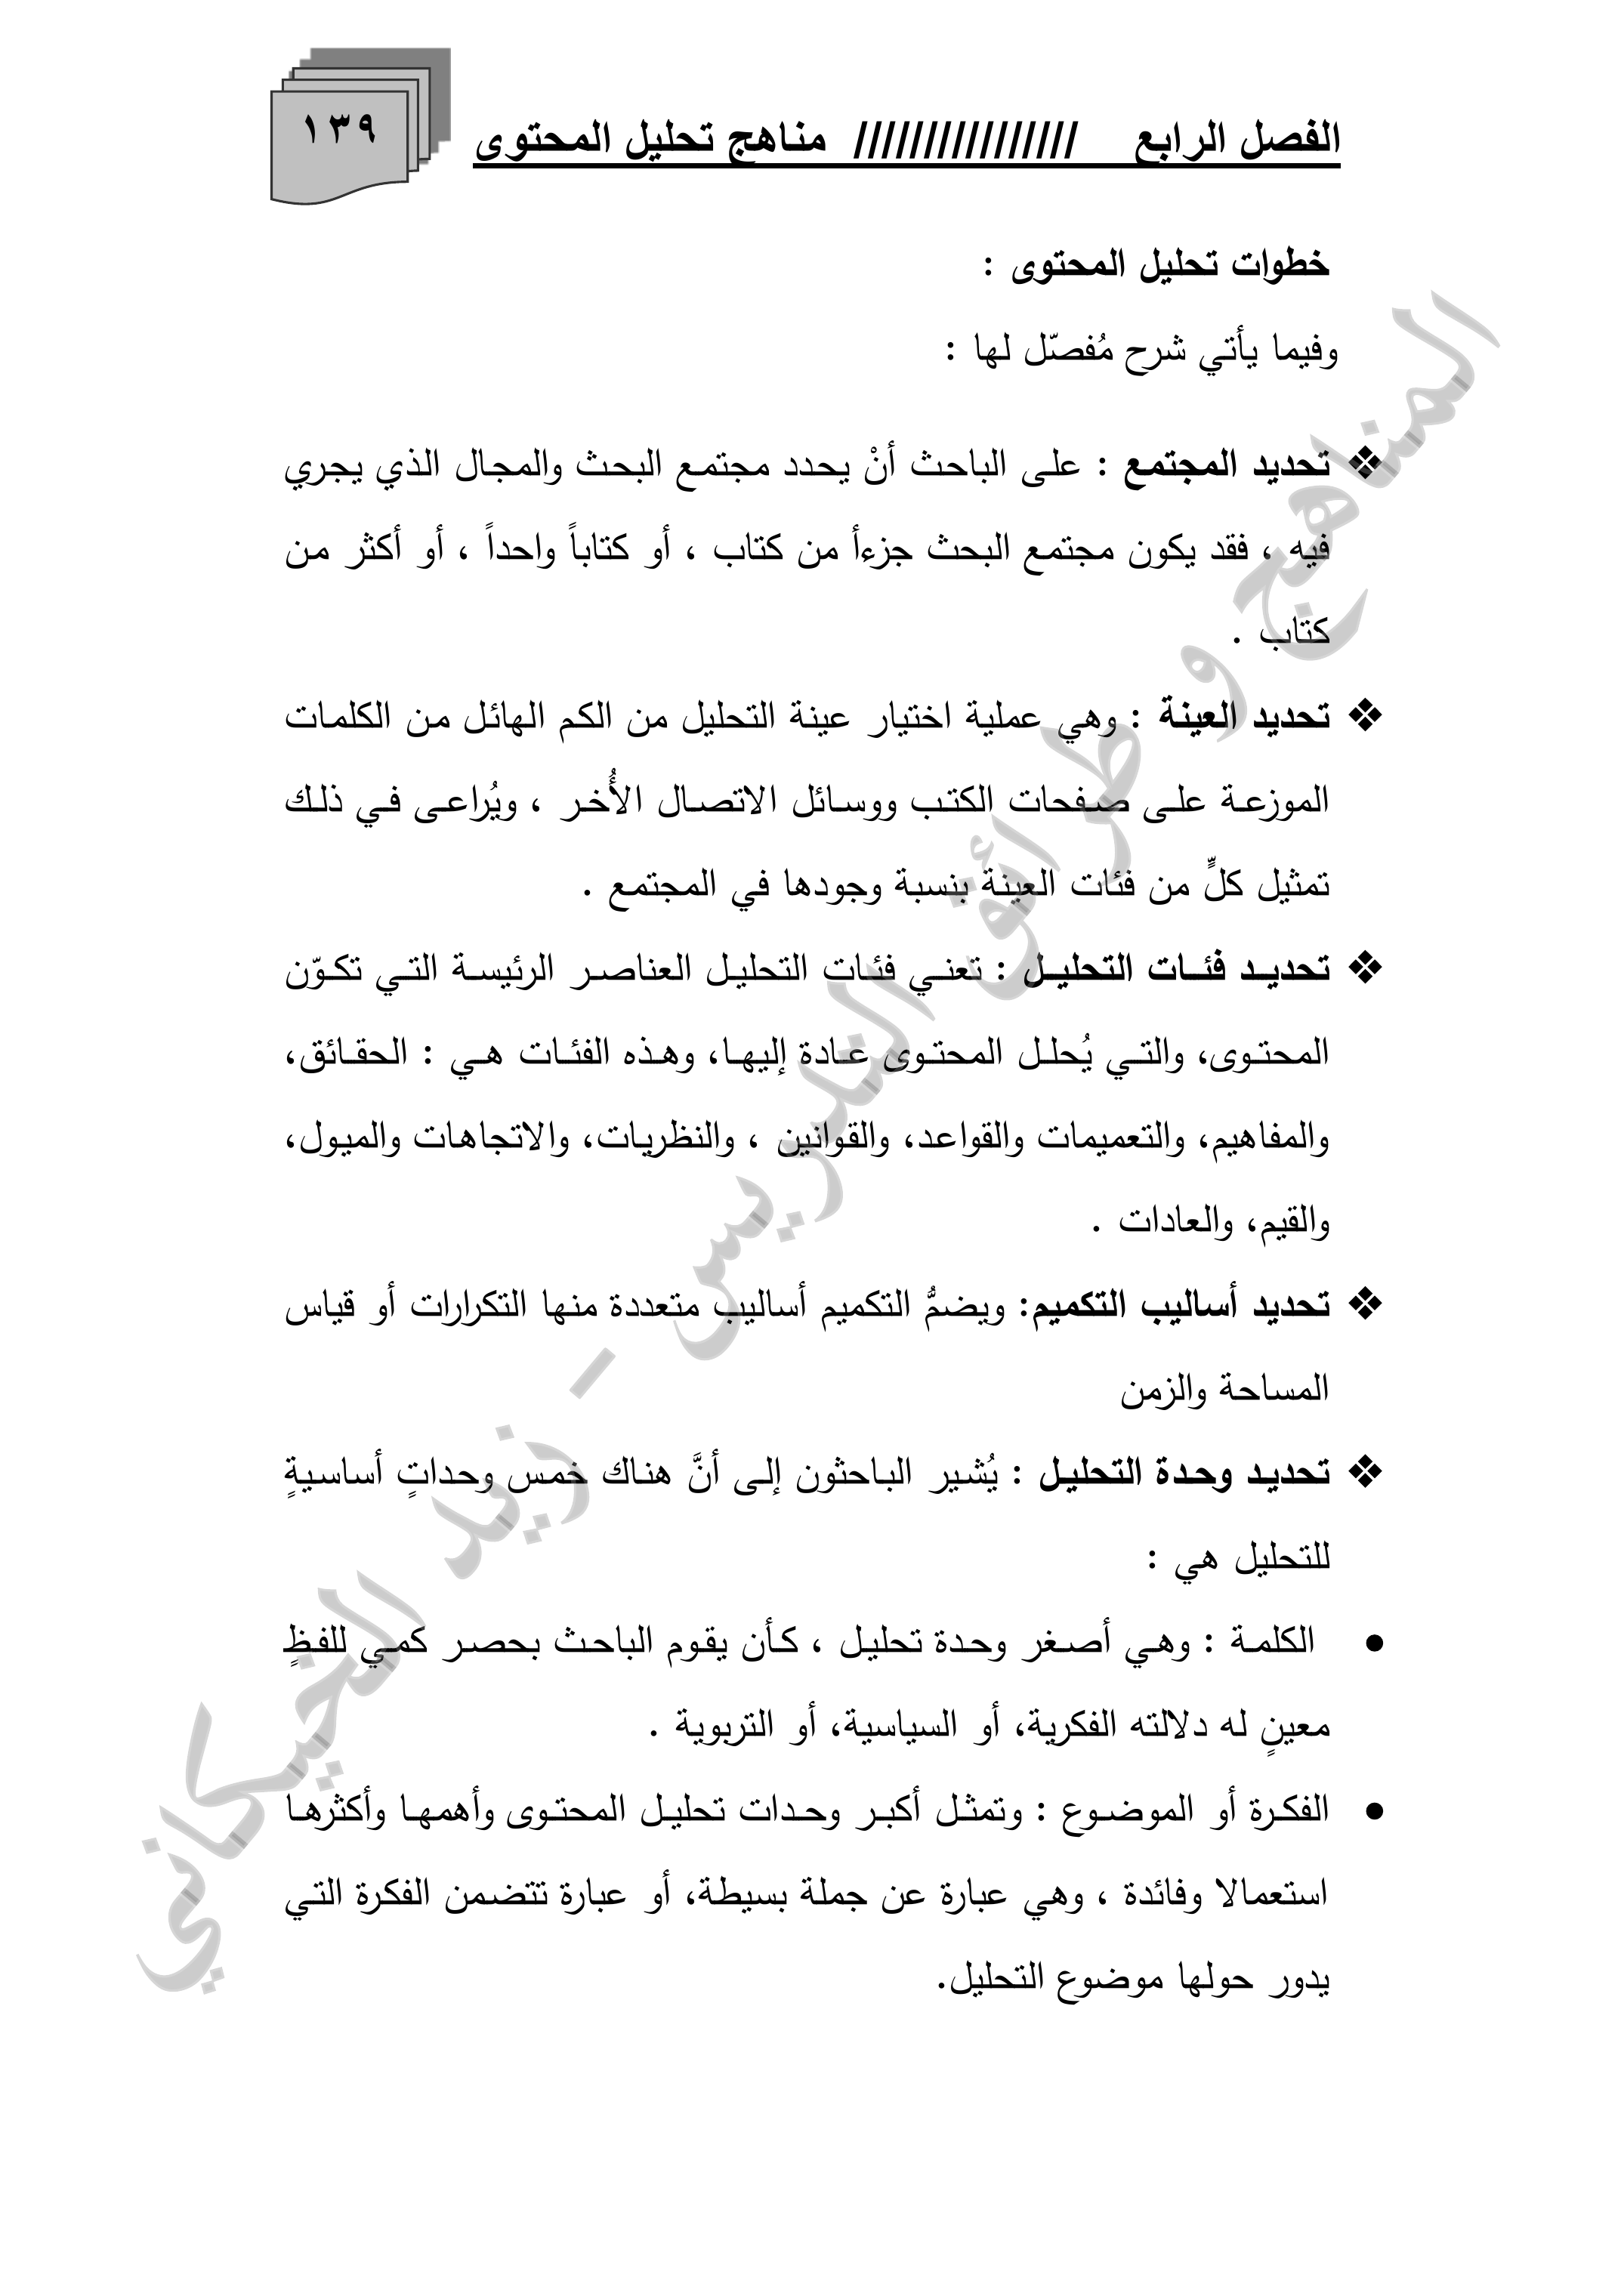 الفصل الرابع //////////////// مناهج تحليل المحتوى
١٣٩
خطوات تحليل المحتوى :
وفيما يأتي شرح مُفصّل لها :
❖ تحديد المجتمع : على الباحث أنْ يحدد مجتمع البحث والمجال الذي يجري
فيه ، فقد يكون مجتمع البحث جزءأ من كتاب ، أو كتاباً واحداً ، أو أكثر من
كتاب .
❖ تحديد العينة : وهي عملية اختيار عينة التحليل من الكم الهائل من الكلمات
الموزعة على صفحات الكتب ووسائل الاتصال الأُخر ، ويُراعى في ذلك
تمثيل كلٍّ من فئات العينة بنسبة وجودها في المجتمع .
❖ تحديد فئات التحليل : تعني فئات التحليل العناصر الرئيسة التي تكوّن
المحتوى، والتي يُحلل المحتوى عادة إليها، وهذه الفئات هي : الحقائق،
والمفاهيم، والتعميمات والقواعد، والقوانين ، والنظريات، والاتجاهات والميول،
والقيم، والعادات .
❖ تحديد أساليب التكميم: ويضمُّ التكميم أساليب متعددة منها التكرارات أو قياس
المساحة والزمن
❖ تحديد وحدة التحليل : يُشير الباحثون إلى أنَّ هناك خمس وحداتٍ أساسيةٍ
للتحليل هي :
• الكلمة : وهي أصغر وحدة تحليل ، كأن يقوم الباحث بحصر كمي للفظٍ
معينٍ له دلالته الفكرية، أو السياسية، أو التربوية .
• الفكرة أو الموضوع : وتمثل أكبر وحدات تحليل المحتوى وأهمها وأكثرها
استعمالا وفائدة ، وهي عبارة عن جملة بسيطة، أو عبارة تتضمن الفكرة التي
يدور حولها موضوع التحليل.
المناهج و طرائق التدريس - زيد الخيكاني